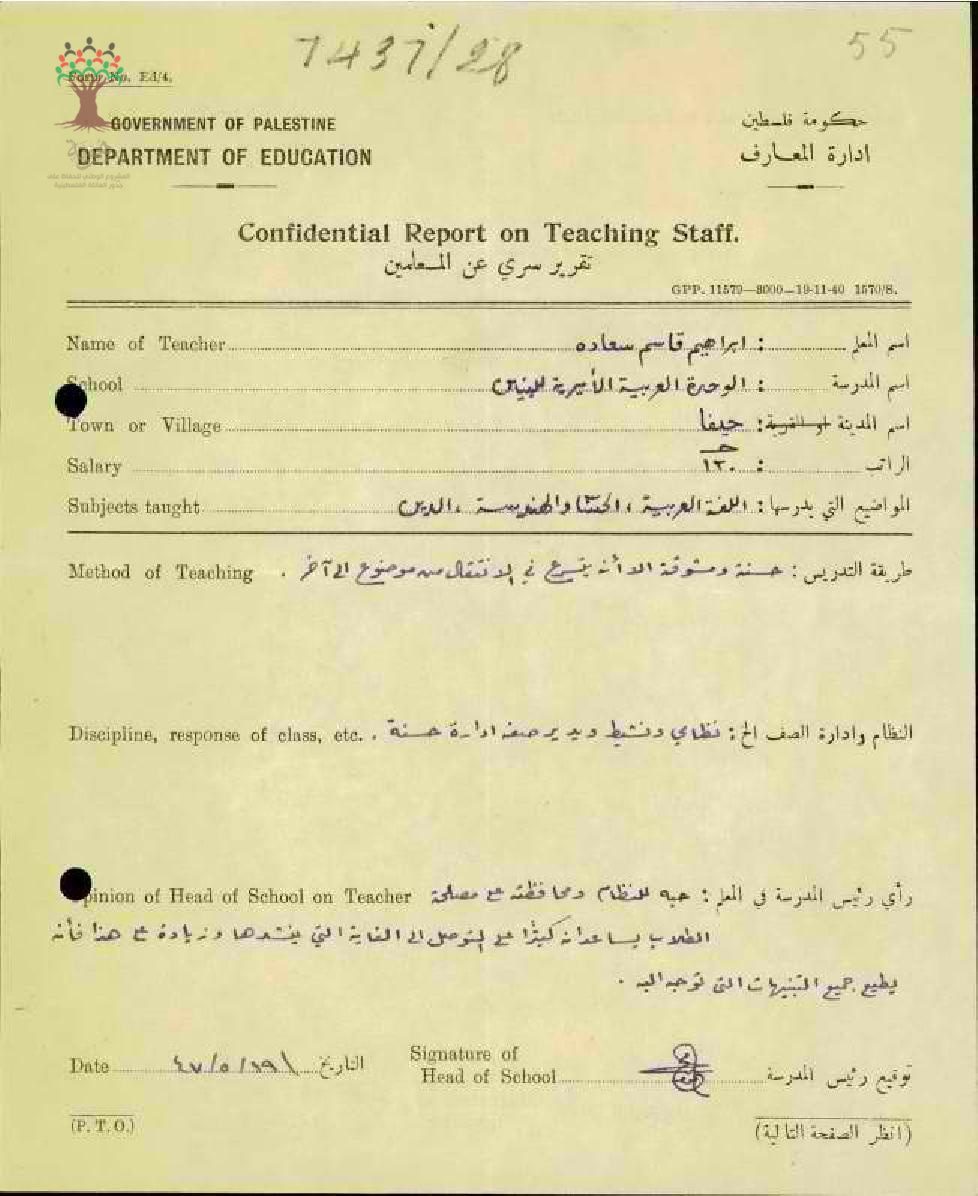 7437/28
55
Form No. Ed/4.
GOVERNMENT OF PALESTINE
حكومة فلسطين
DEPARTMENT OF EDUCATION
ادارة المعارف
المشروع الوطني للحفاظ على
جذور العائلة الفلسطينية
Confidential Report on Teaching Staff.
تقرير سري عن المعلمين
GPP. 11579—8000—19-11-40 1570/S.
Name of Teacher اسم المعلم : ابراهيم قاسم سعاده
School اسم المدرسة : الوحدة العربية الأميرية للبنين
Town or Village اسم المدينة او القرية : حيفا
Salary الراتب : ١٣٠
Subjects taught المواضيع التي يدرسها : اللغة العربية ، الحساب والهندسة ، الدين
Method of Teaching طريقة التدريس : حسنة ومشوقة الا أنه يتسرع في الانتقال من موضوع الى آخر .
Discipline, response of class, etc. النظام وادارة الصف الخ : نظامي ونشيط ويدير صفه ادارة حسنة .
Opinion of Head of School on Teacher رأي رئيس المدرسة في المعلم : حبه للنظام ومحافظته على مصلحة
الطلاب يساعدانه كثيرًا على التوصل الى الغاية التي ينشدها وزيادة على هذا فأنه
يطيع جميع التنبيهات التي توجه اليه .
Date التاريخ ١٩/٥/٤٧
Signature of
Head of School توقيع رئيس المدرسة
(P. T. O.)
(انظر الصفحة التالية)